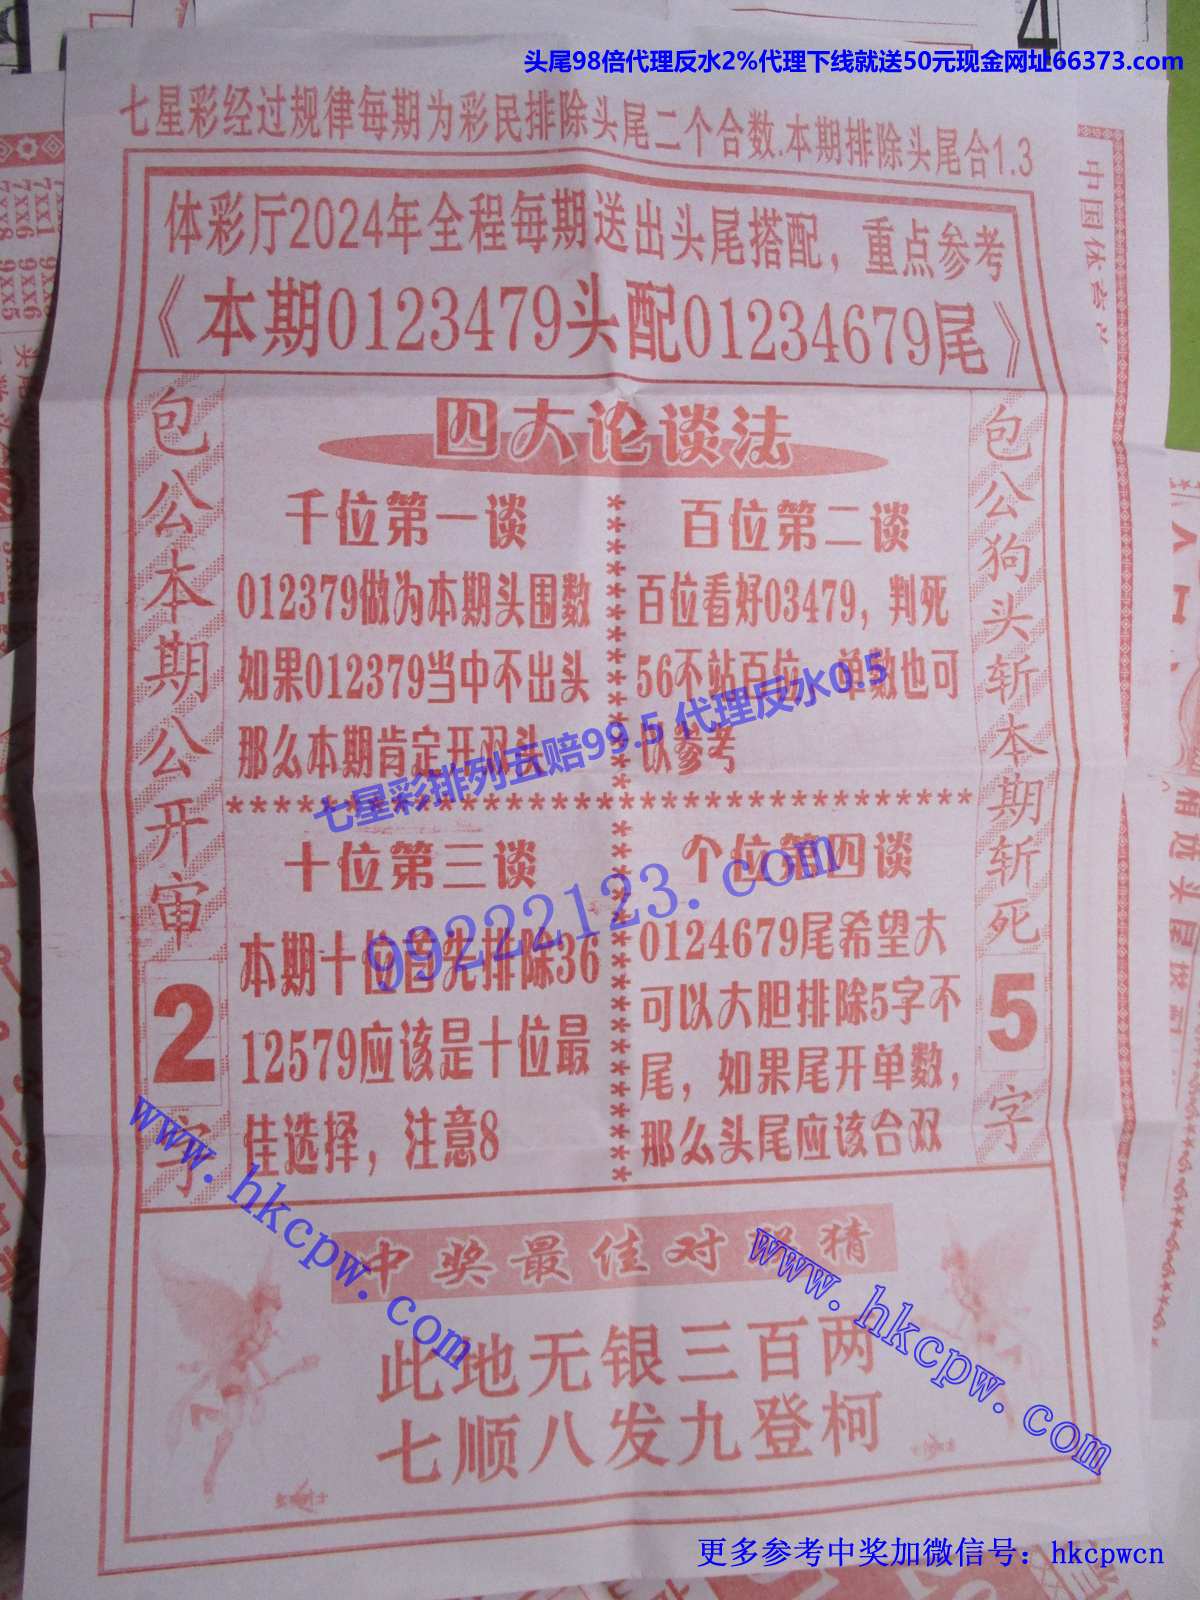 头尾98倍代理反水2%代理下线就送50元现金网址66373.com
七星彩经过规律每期为彩民排除头尾二个合数.本期排除头尾合1.3
体彩厅2024年全程每期送出头尾搭配，重点参考
《本期0123479头配01234679尾》
包公本期公开审2字
四大论谈法
千位第一谈
012379做为本期头围数
如果012379当中不出头
那么本期肯定开双头
百位第二谈
百位看好03479，判死
56不站百位，单数也可
以参考
七星彩排列五赔99.5 代理反水0.5
99222123.com
十位第三谈
本期十位首先排除36
12579应该是十位最
佳选择，注意8
个位第四谈
0124679尾希望大
可以大胆排除5字不
尾，如果尾开单数，
那么头尾应该合双
包公狗头斩本期斩死5字
www.hkcpw.com
www.hkcpw.com
中奖最佳对
猜
此地无银三百两
七顺八发九登柯
更多参考中奖加微信号：hkcpwcn
4
7xx1
7xx6
7xx8
9xx6
9xx5